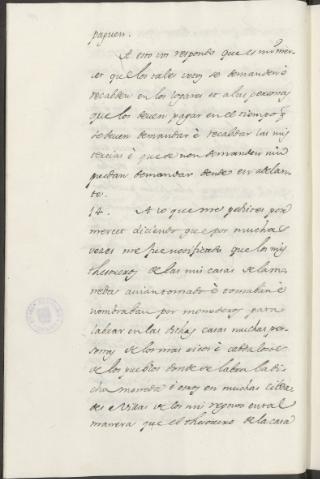 paguen.
A esto vos respondo que es mi mer-
cet que los tales vros se demanden è
recabden en los logares et a las personas
que los deven pagar en el tiempo q
se deven demandar è recabdar las mis
rentas è que se non demanden nin
puedan demandar dende en adelan-
te.
14. A lo que me pedistes por
merced diciendo que por muchas
veces me fue notificado que los mis
thesoreros de las mis casas de la mo-
neda avian tomado è tomaban è
nombraban por monederos para
labrar en las dichas casas muchas per-
sonas de los mas ricos è cabdalosos
de los pueblos donde se labra la di-
cha moneda è otros en muchas cibda-
des è Villas de los mis regnos en tal
manera que el thesorero de la casa